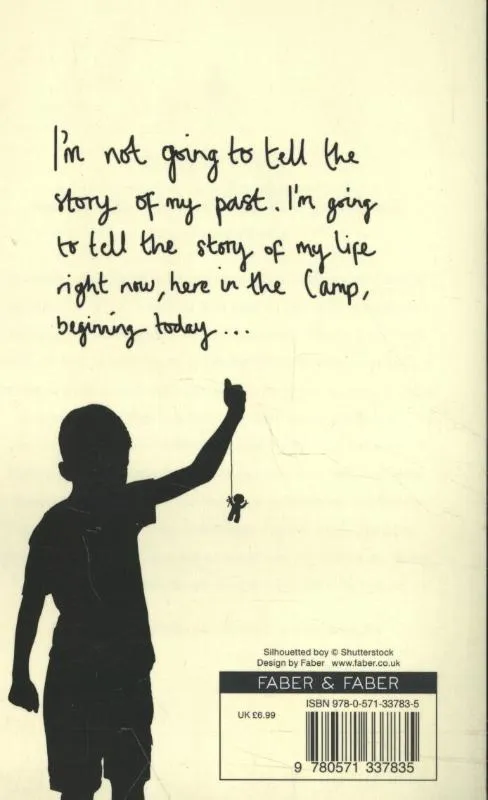 I'm not going to tell the
story of my past. I'm going
to tell the story of my life
right now, here in the Camp,
beginning today...
Silhouetted boy © Shutterstock
Design by Faber www.faber.co.uk
FABER & FABER
ISBN 978-0-571-33783-5
UK £6.99
9 780571 337835